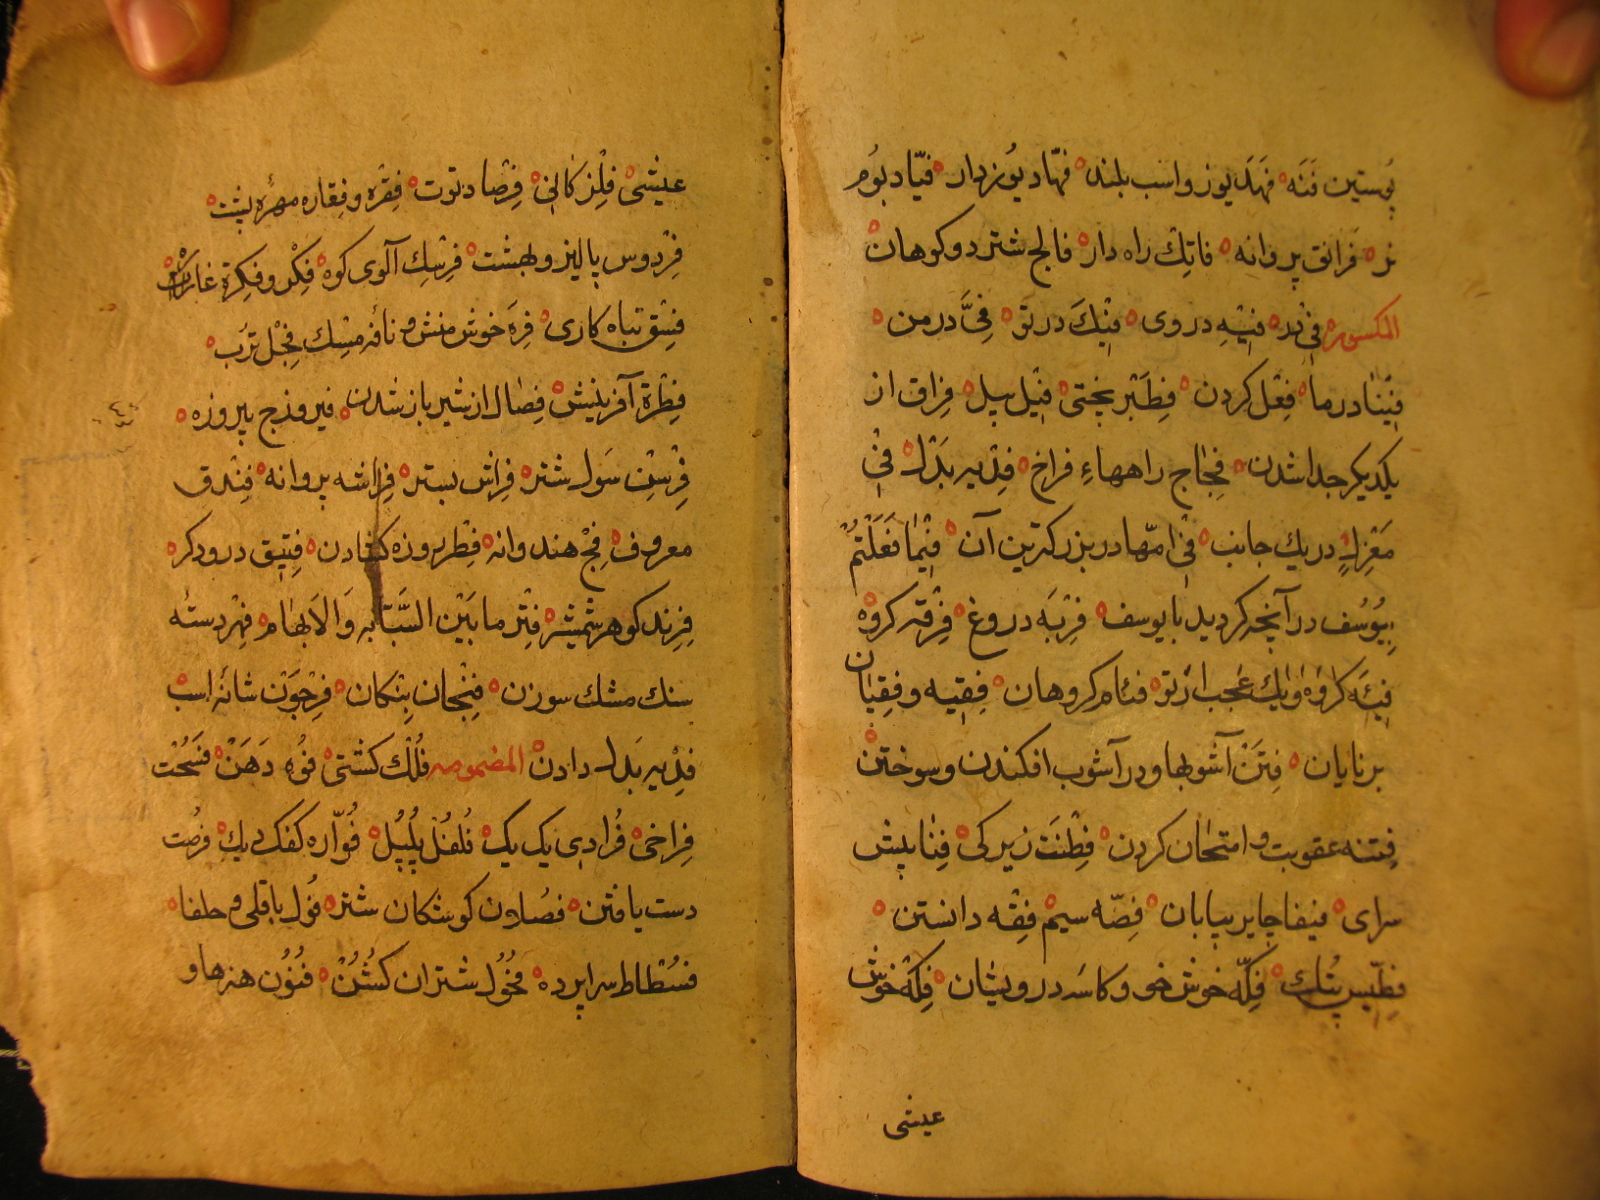 پوستین فَنَه فَهَد یوز و اسب بلند فهّاد یوزدار فیّاد بوم
نر فرانق پروانه فاتِك راه دار فالج شتر دو کوهان
المکسوره فی در فیهِ در وی فیكَ در تو فیَّ در من
فینا در ما فِعْل کردن فِطَبْر بختی فیل پیل فِراق از
یکدیکر جدا شدن فِجاج راههاءِ فراخ فِدْیه بَدَل فی
مَعْزِلٍ در یك جانب فی امّها در بزرکترین آن فیما فَعَلْتُمْ
بِیُوسُف در آنچه کردید با یوسف فِرْیَه دروغ فِرْقه کروه
فِئَه کروه فئام کروهان فِقیه و فِقیان
برنایان فِتَنْ آشوبها و در آشوب افکندن و سوختن
فِتنه عقوبت و امتحان کردن فِطْنَت زیرکی فِنا پیش
سرای فیفا جایر بیابان فِضّه سیم فِقْه دانستن
فِطّیس پُتك فِکِّه خوش خو و کاسه درویشان فِکَّه خوش
عیشی
عیشی فِلِز کانی فِرْصاد توت فِقْره و فِقاره مهرهٔ پشت
فِرْدوس پالیز و بهشت فِرْسِك آلوی کوه فِکْر و فِکِرة
فِسْق تباه کاری فِرَه خوش منش و نافهٔ مِسْك فِجْل تُرُب
فِطْرة آفرینش فِصال از شیر باز شدن فیروزج پیروزه
فِرْسِن سَوَل شتر فِراش بستر فِراشه پروانه فِنْدق
معروف فِجّ هندوانه فِطْر روزه کشادن فِتیق درودکر
فِرِند کوهر شمشیر فِتْر ما بَیْن السَّبّابه وَالاَبهام فِهْر دسته
سنك مشك سوزن فِنْجان پنکان فِرْجَوْن شانهٔ اسب
فِدْیه بَدَل دادن المضمومه فُلْك کشتی فُوه دَهَنْ فُسْحَت
فراخی فُرادی یك یك فُلفُل پُلپُل فُوّاره کفك دیك فرُصت
دست یافتن فصُلان کوشکان شتر فُول باقلی و حلفا
فسُطاط سراپرده فُحُول شتران کُشُنْ فنُوُن هنرها و